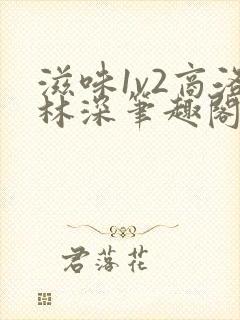 滋味1v2高洛
林深笔趣阁
君落花